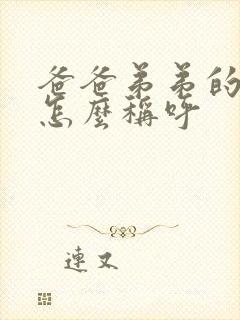 爸爸弟弟的
怎麼稱呼
連又